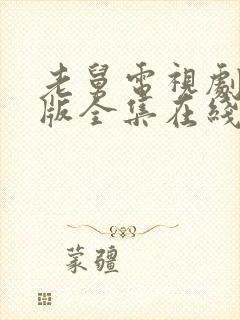 老舅電視劇
版全集在綫
蒙疆